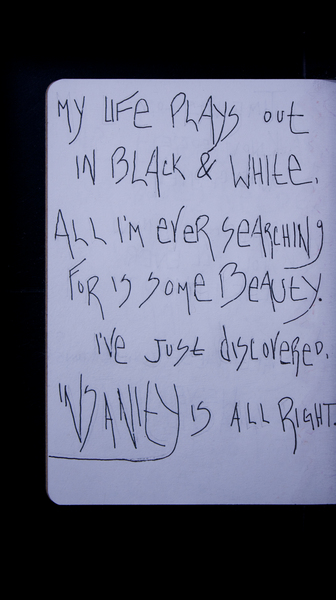 MY LIFE PLAYS OUT
IN BLACK & WHITE.
ALL I'M EVER SEARCHING
FOR IS SOME BEAUTY.
I'VE JUST DISCOVERED.
INSANITY IS ALL RIGHT.